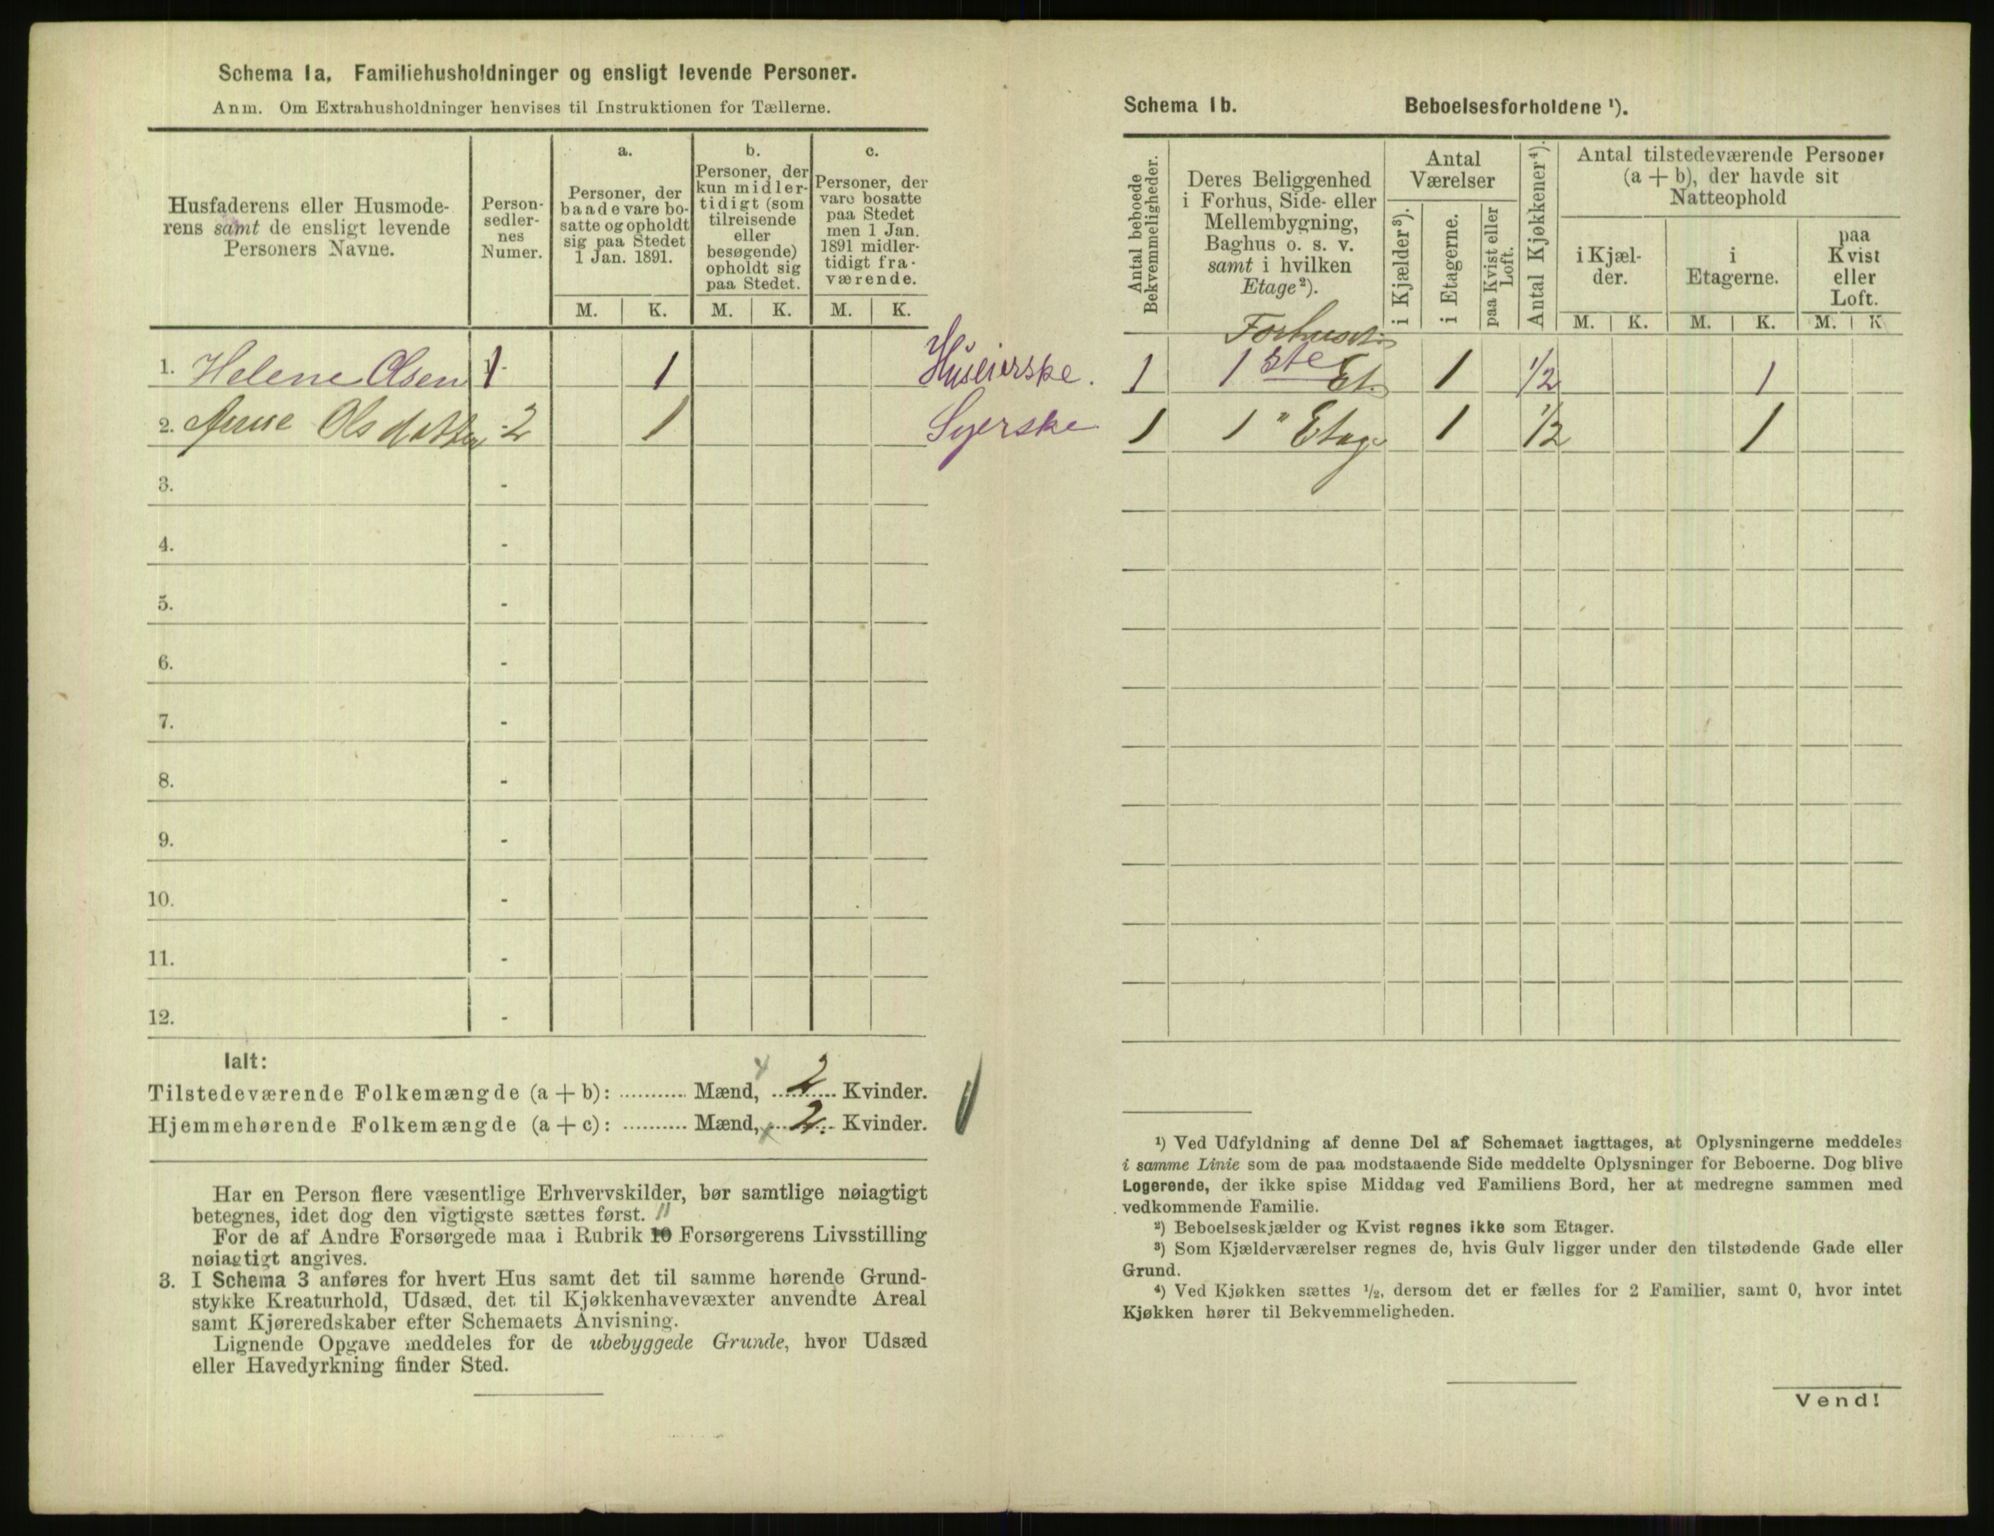 Schema 1a. Familiehusholdninger og ensligt levende Personer.
Anm. Om Extrahusholdninger henvises til Instruktionen for Tællerne.
Husfaderens eller Husmode-
rens samt de ensligt levende
Personers Navne.
Person-
sedler-
nes
Numer.
a.
Personer, der
baade vare bo-
satte og opholdt
sig paa Stedet
1 Jan. 1891.
b.
Personer, der
kun midler-
tidigt (som
tilreisende
eller
besøgende)
opholdt sig
paa Stedet.
c.
Personer, der
vare bosatte
paa Stedet
men 1 Jan.
1891 midler-
tidigt fra-
værende.
M. K. M. K. M. K.
1. Helene Olsen 1 1 Huseierske.
2. Anne Olsdatter - 2 1 Syerske
3. -
4. -
5. -
6. -
7. -
8. -
9. -
10. -
11. -
12. -
Ialt:
Tilstedeværende Folkemængde (a + b): ........... Mænd, 2 Kvinder.
Hjemmehørende Folkemængde (a + c): ........... Mænd, 2. Kvinder.
Har en Person flere væsentlige Erhvervskilder, bør samtlige nøiagtigt
betegnes, idet dog den vigtigste sættes først. 11
For de af Andre Forsørgede maa i Rubrik 10 Forsørgerens Livsstilling
nøiagtigt angives.
3. I Schema 3 anføres for hvert Hus samt det til samme hørende Grund-
stykke Kreaturhold, Udsæd, det til Kjøkkenhavevæxter anvendte Areal
samt Kjøreredskaber efter Schemaets Anvisning.
Lignende Opgave meddeles for de ubebyggede Grunde, hvor Udsæd
eller Havedyrkning finder Sted.
Schema 1b. Beboelsesforholdene ¹).
Antal beboede
Bekvemmeligheder.
Deres Beliggenhed
i Forhus, Side- eller
Mellembygning,
Baghus o. s. v.
samt i hvilken
Etage²).
Antal
Værelser
i Kjælder³).
i Etagerne.
paa Kvist eller
Loft.
Antal Kjøkkener⁴).
Antal tilstedeværende Personer
(a + b), der havde sit
Natteophold
i Kjæl-
der.
i
Etagerne.
paa
Kvist
eller
Loft.
M. K. M. K. M. K
Forhuset
1 1 ste Et. 1 1/2 1
1 1 " Etage 1 1/2 1
¹) Ved Udfyldning af denne Del af Schemaet iagttages, at Oplysningerne meddeles
i samme Linie som de paa modstaaende Side meddelte Oplysninger for Beboerne. Dog blive
Logerende, der ikke spise Middag ved Familiens Bord, her at medregne sammen med
vedkommende Familie.
²) Beboelseskjælder og Kvist regnes ikke som Etager.
³) Som Kjælderværelser regnes de, hvis Gulv ligger under den tilstødende Gade eller
Grund.
⁴) Ved Kjøkken sættes ½, dersom det er fælles for 2 Familier, samt 0, hvor intet
Kjøkken hører til Bekvemmeligheden.
Vend!